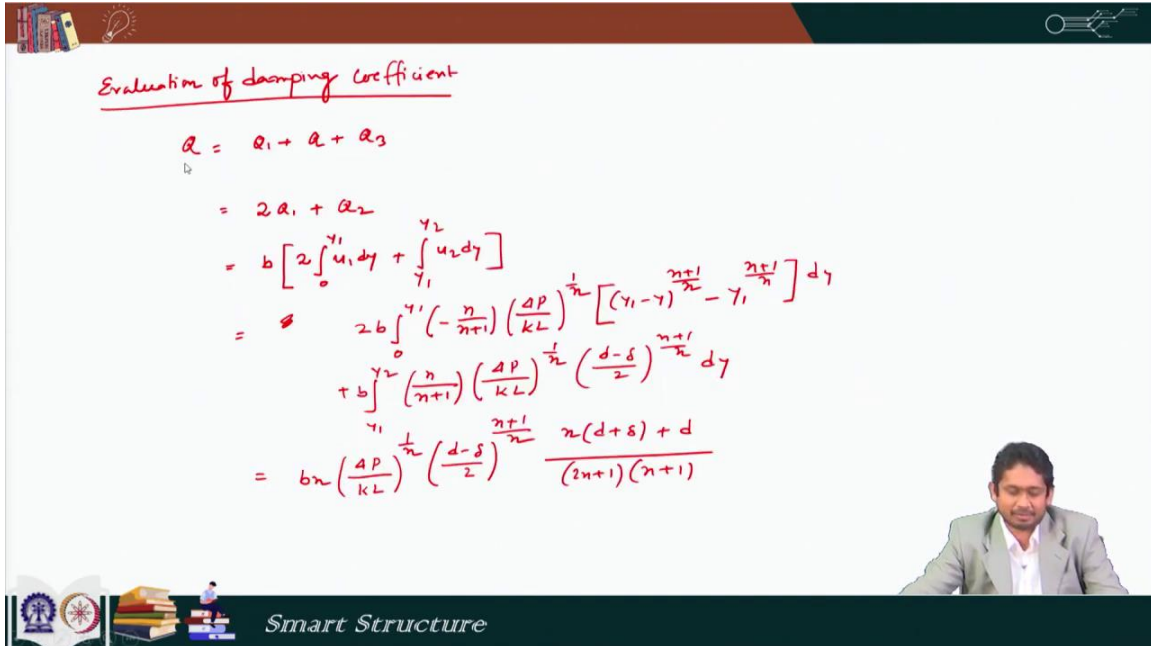 Evaluation of damping coefficient
Q = Q₁ + Q + Q₃
= 2Q₁ + Q₂
= b[2∫₀^{y₁} u₁dy + ∫_{y₁}^{y₂} u₂dy]
= 2b∫₀^{y₁} (-n/(n+1)) (ΔP/kL)^{1/n} [(y₁-y)^{(n+1)/n} - y₁^{(n+1)/n}] dy
+ b∫_{y₁}^{y₂} (n/(n+1)) (ΔP/kL)^{1/n} ((d-δ)/2)^{(n+1)/n} dy
= bn(ΔP/kL)^{1/n} ((d-δ)/2)^{(n+1)/n} (n(d+δ)+d)/((2n+1)(n+1))
Smart Structure